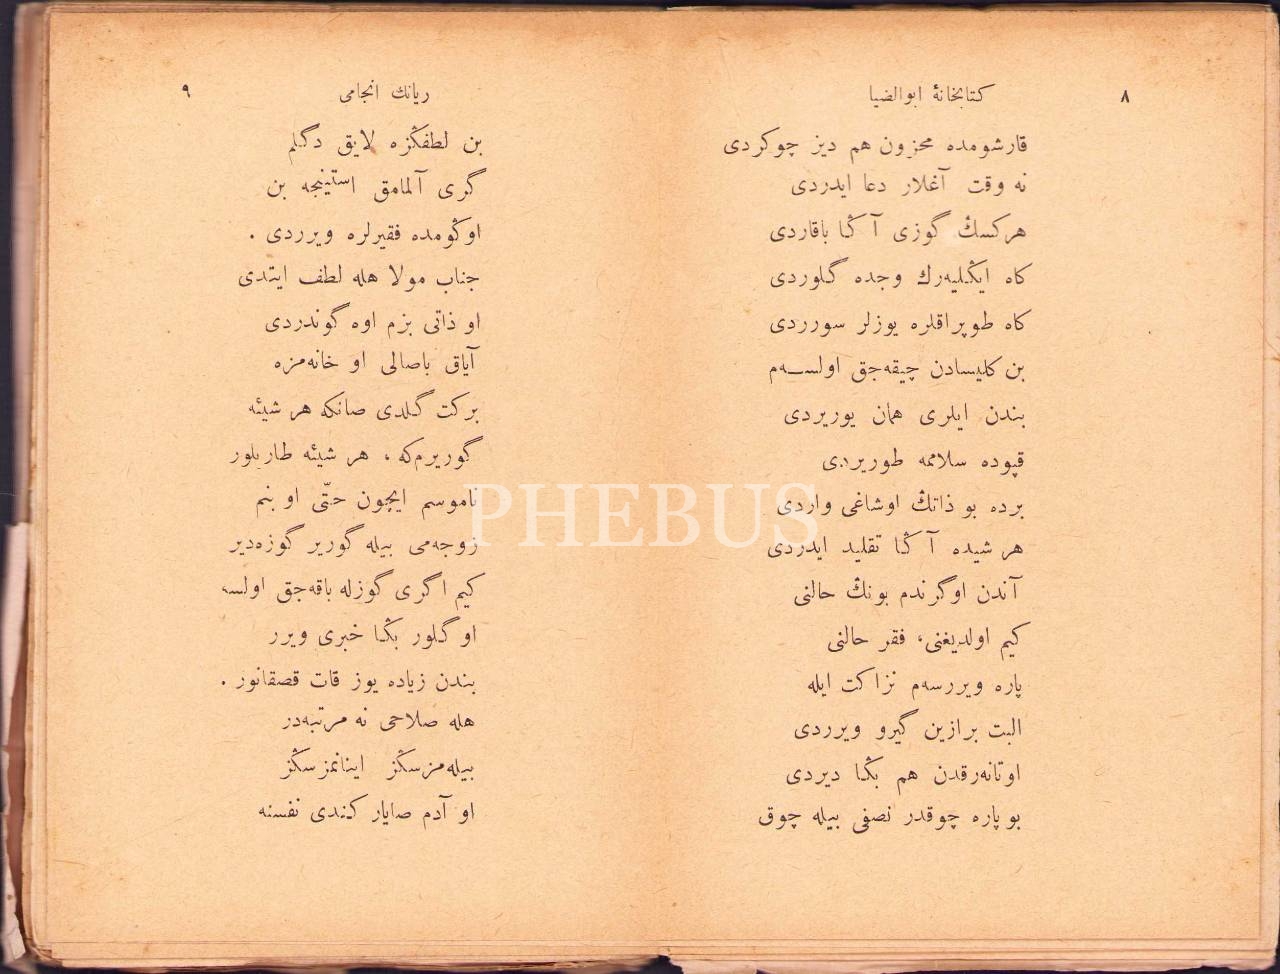 ٨
كتابخانهٔ ابوالضيا
قارشومده محزون هم ديز چوكردی
نه وقت آغلار دعا ايدردی
هركسڭ گوزی آڭا باقاردی
كاه ايڭليه‌رك وجده گلوردی
كاه طوپراقلره يوزلر سورردی
بن كليسادن چيقه‌جق اولسه‌م
بندن ايلری همان يوريردی
قپوده سلاممه طوريردی
برده بو ذاتڭ اوشاغی واردی
هر شيده آڭا تقليد ايدردی
آندن اوگرندم بونڭ حالنی
كيم اولديغنی، فقر حالنی
پاره ويررسه‌م نزاكت ايله
البت برازين گيرو ويرردی
اوتانه‌رقدن هم بڭا ديردی
بو پاره چوقدر نصفی بيله چوق
ريانك انجامی
٩
بن لطفڭزه لايق دگلم
گری آلمامق استينجه بن
اوڭومده فقيرلره ويرردی .
جناب مولا هله لطف ايتدی
او ذاتی بزم اوه گوندردی
آياق باصالی او خانه‌مزه
بركت گلدی صانكه هر شيئه
گوريرم‌كه ، هر شيئه طاريلور
ناموسم ايچون حتّی او بنم
زوجه‌می بيله گورير گوزه‌دير
كيم اگری گوزله باقه‌جق اولسه
او گلور بڭا خبری ويرر
بندن زياده يوز قات قصقانور .
هله صلاحی نه مرتبه‌در
بيله‌مزسڭز اينانمزسڭز
او آدم صايار كندی نفسنه
PHEBUS